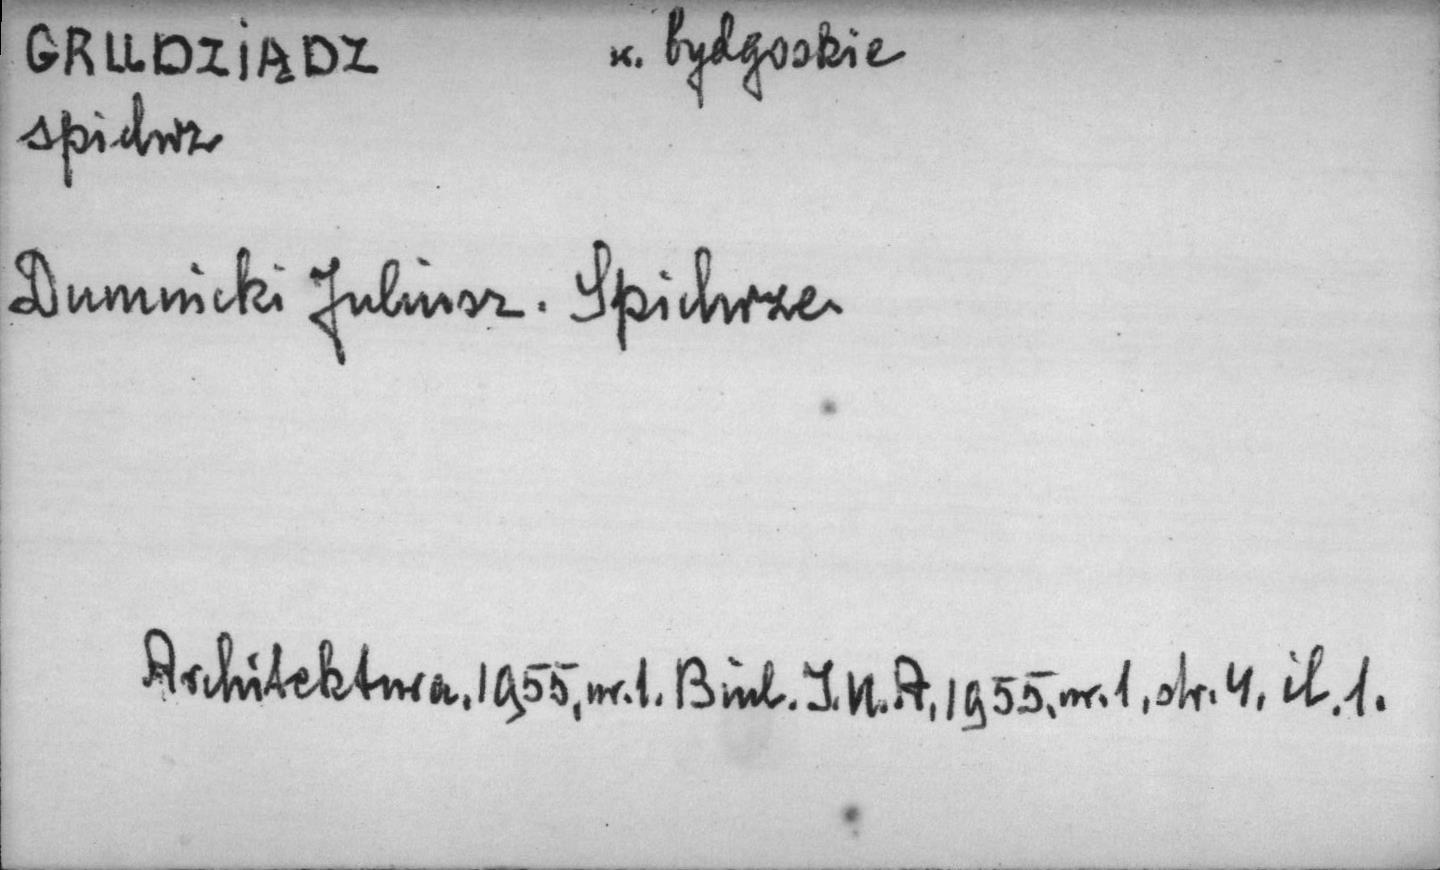 GRUDZIĄDZ w. bydgoskie
spichrz
Dumnicki Juliusz. Spichrze
Architektura, 1955, nr. 1. Biul. I.U.A, 1955, nr. 1, str. 4, il. 1.